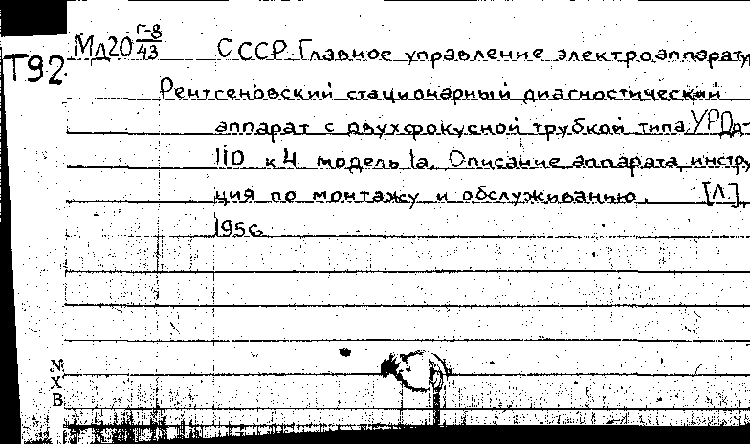 Мл20 Г-8/43 СССР. Главное управление электроаппарату
Т92. Рентгеновский стационарный диагностический
аппарат с двухфокусной трубкой типа УРДд-
110 к4 модель 1а. Описание аппарата, инстру
ция по монтажу и обслуживанию. [Л],
1956
N
X
B